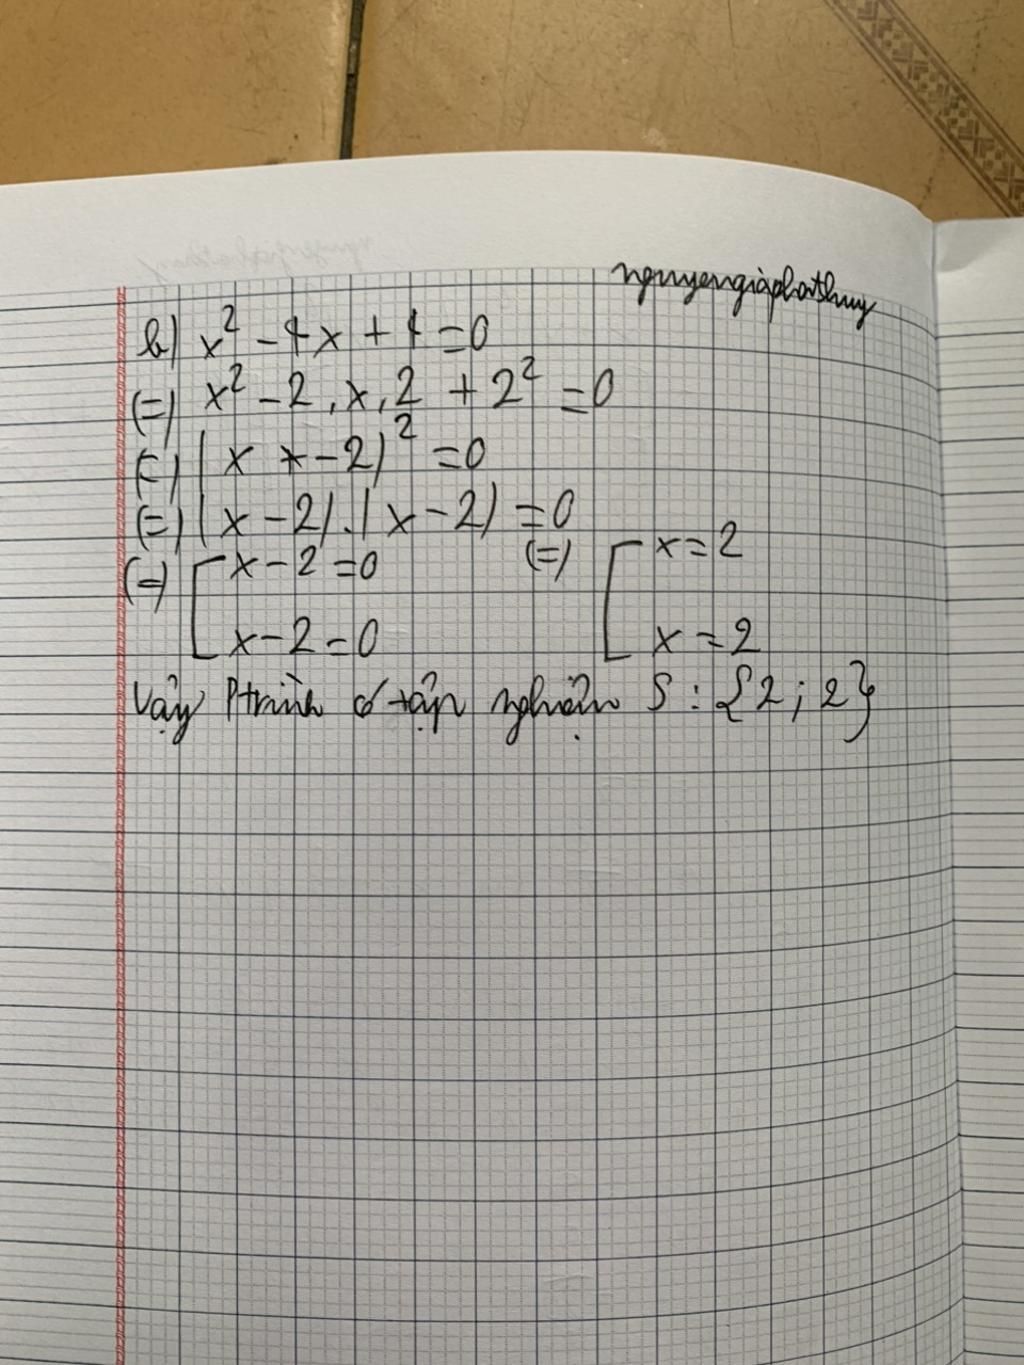 nguyengiaphatthuy
b) x² - 4x + 4 = 0
(=) x² - 2 . x . 2 + 2² = 0
(=) (x x - 2)² = 0
(=) (x - 2) . (x - 2) = 0
(=) [ x - 2 = 0 (=) [ x = 2
x - 2 = 0 x = 2
Vậy Ptrình có tập nghiệm S : {2 ; 2}